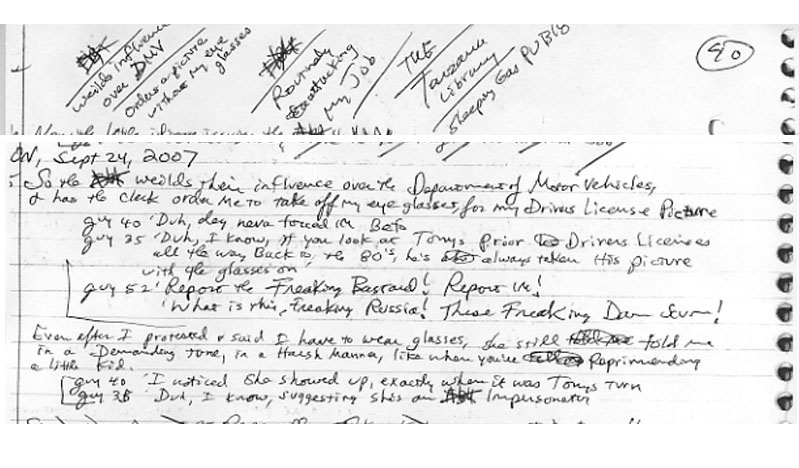 weilds influence
over DMV
orders a picture
without my eye
glasses
Routinely
attacking
my Job
THE
Tanzania
Library
Sleeping Gas PUBlo
90
ON, Sept 24, 2007
So the weilds their influence over the Department of Motor Vehicles,
& has the clerk order me to take off my eye glasses, for my Drivers License Picture
guy 40 'Duh, day neva forced im Befo
guy 35 'Duh, I know, if you look at Tonys Prior Drivers Licenses
all the way Back to the 80's, he's always taken His picture
with the glasses on'
guy 52 'Report the Freaking Bastard! Report im!
'What is this, Freaking Russia! These Freaking Damn Scum!
Even after I protested & said I have to wear glasses, she still told me
in a Demanding tone, in a Harsh Manner, like when you're Reprimending
a little kid.
guy 40 'I noticed She showed up, exactly when it was Tonys turn
guy 35 'Duh, I know, suggesting shes an Impersonator